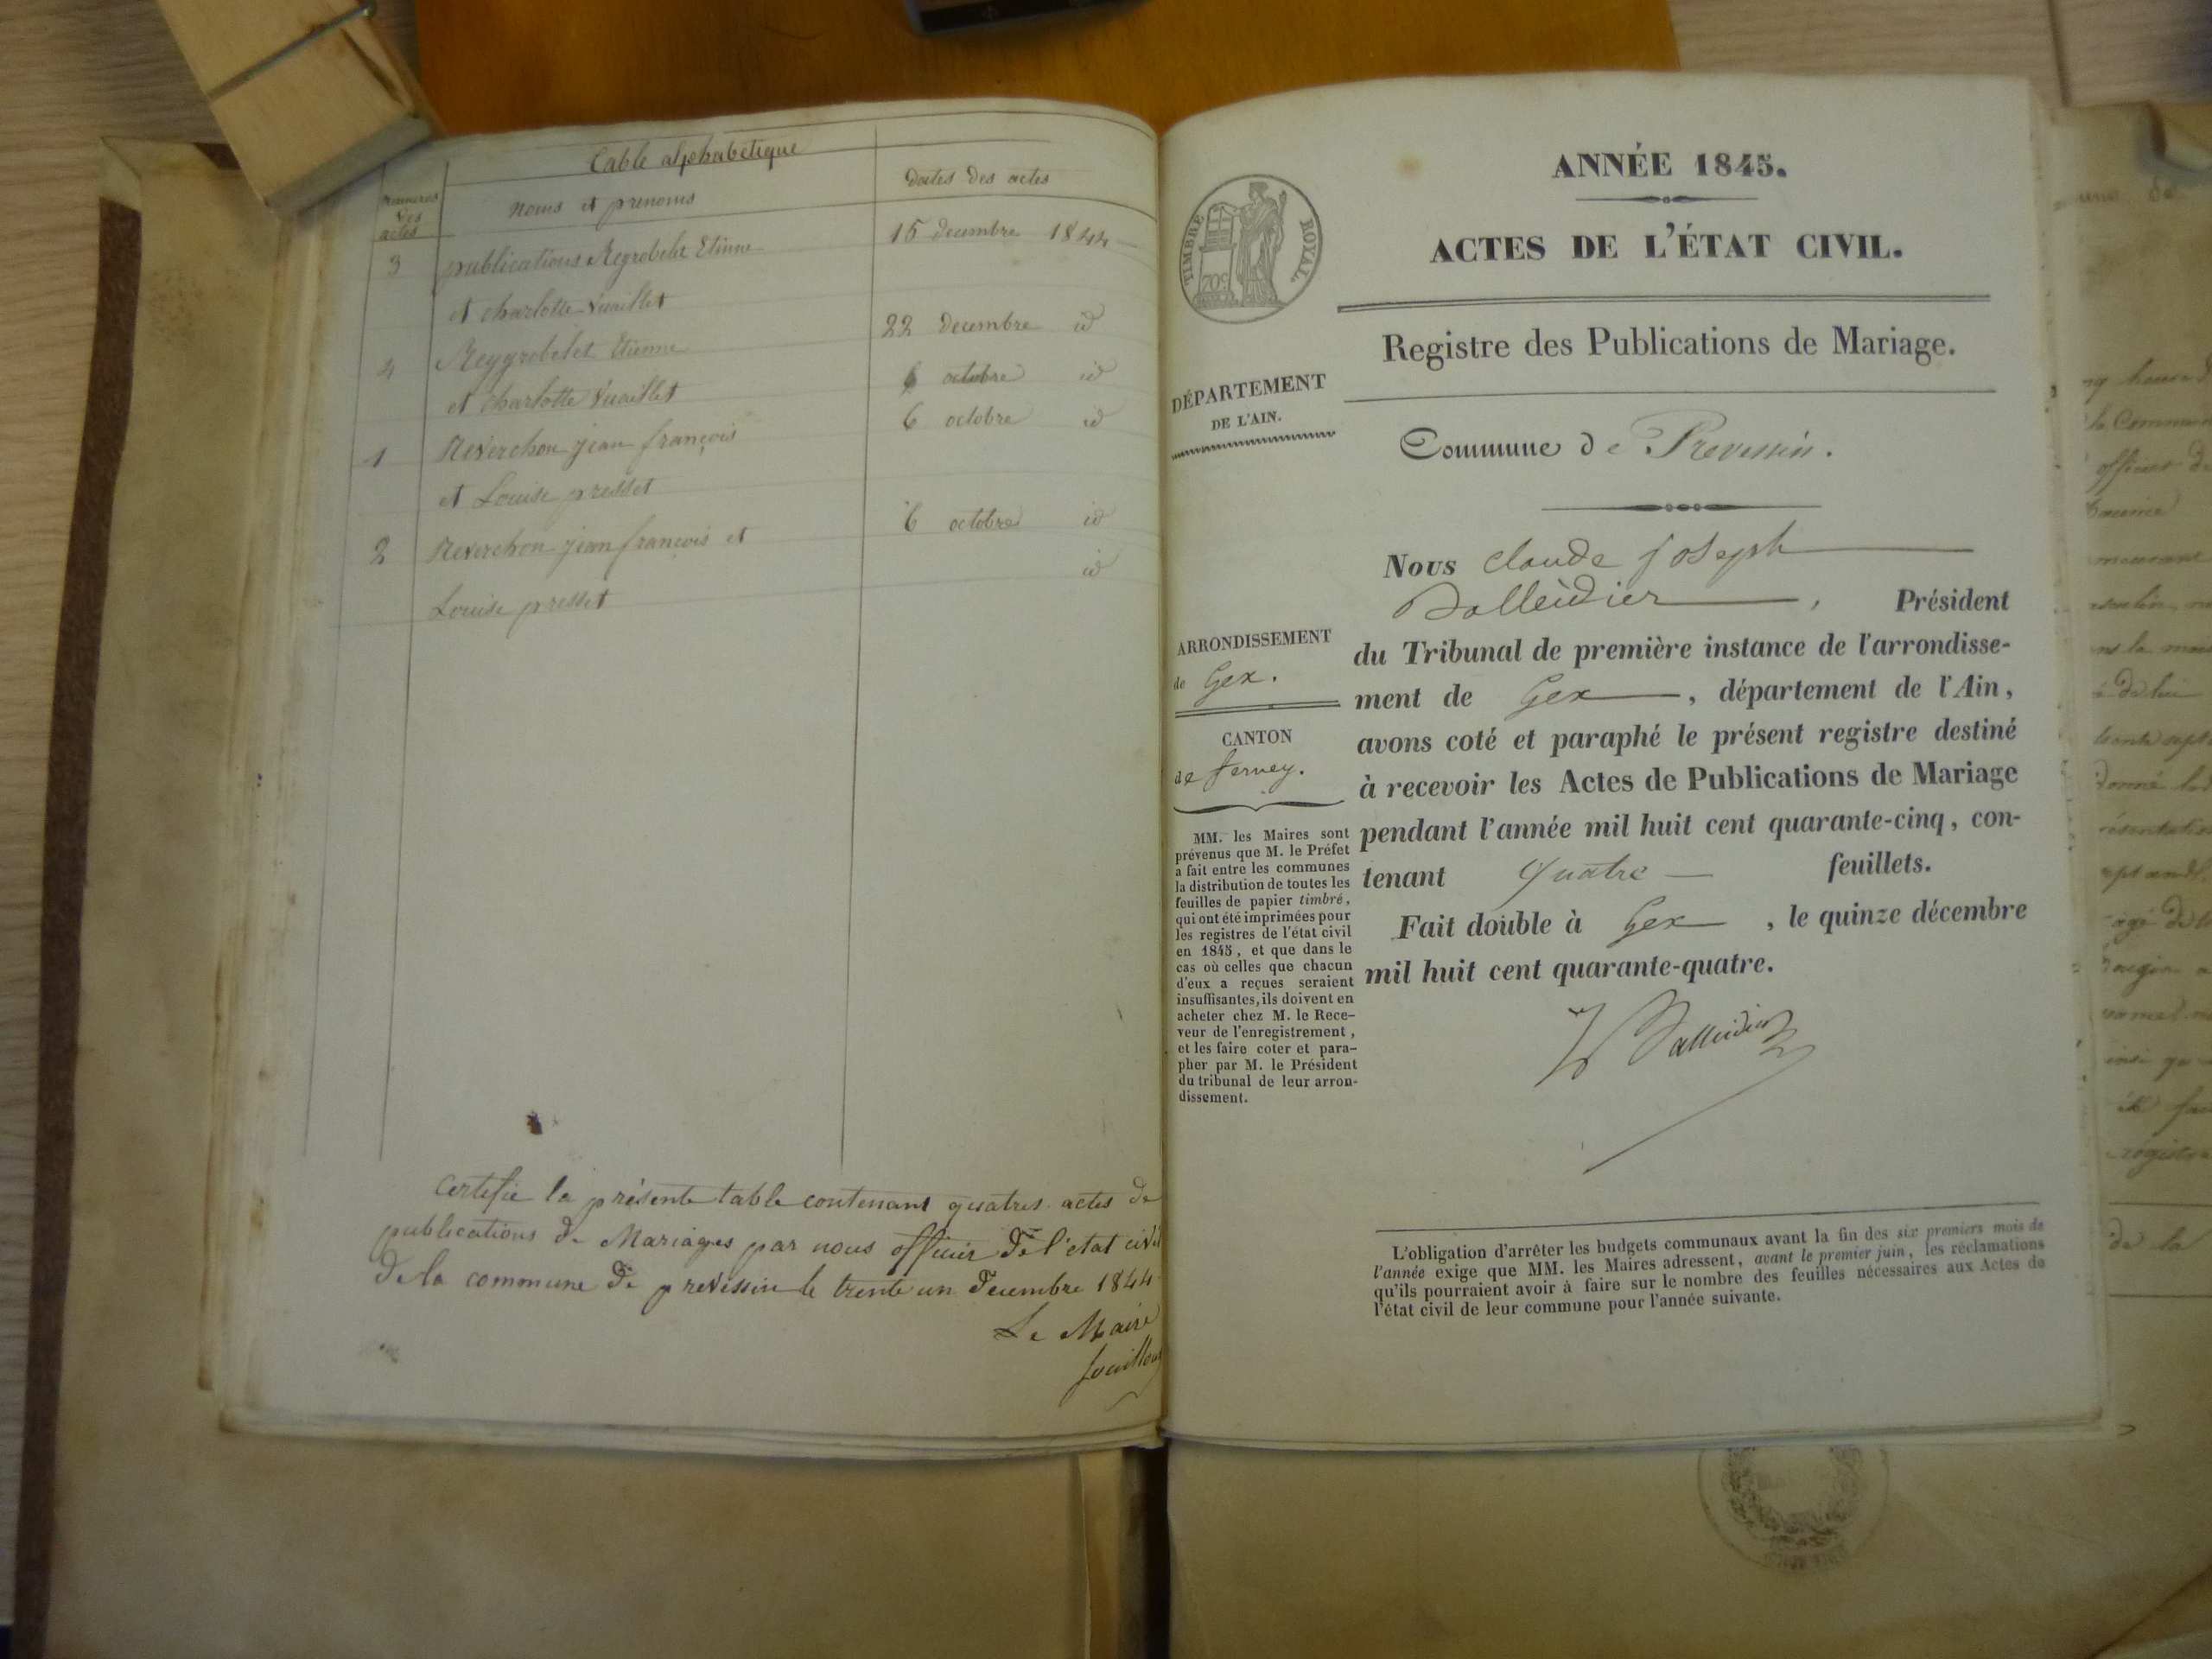 Table alphabetique
numeros des actes
noms et prenoms
dates des actes
3 publications Regrobelet Etienne 15 decembre 1844
et charlotte Vuaillet
4 Reygrobelet Etienne 22 decembre id
et charlotte Vuaillet 6 octobre id
1 Reverchon jean françois 6 octobre id
et Louise presset
2 Reverchon jean françois et 6 octobre id
Louise presset id
Certifie la présente table contenant quatres actes de
publications de Mariages par nous officier de l'état civil
de la commune de prevessin le trente un decembre 1844
Le Maire
ANNÉE 1845.
TIMBRE ROYAL
70c
ACTES DE L'ÉTAT CIVIL.
Registre des Publications de Mariage.
DÉPARTEMENT
DE L'AIN.
Commune de Prevessin.
Nous Claude Joseph
Balleidier, Président
du Tribunal de première instance de l'arrondisse-
ment de Gex, département de l'Ain,
avons coté et paraphé le présent registre destiné
à recevoir les Actes de Publications de Mariage
pendant l'année mil huit cent quarante-cinq, con-
tenant quatre feuillets.
Fait double à Gex, le quinze décembre
mil huit cent quarante-quatre.
Balleidier
ARRONDISSEMENT
de Gex.
CANTON
de ferney.
MM. les Maires sont
prévenus que M. le Préfet
a fait entre les communes
la distribution de toutes les
feuilles de papier timbré,
qui ont été imprimées pour
les registres de l'état civil
en 1845, et que dans le
cas où celles que chacun
d'eux a reçues seraient
insuffisantes, ils doivent en
acheter chez M. le Rece-
veur de l'enregistrement,
et les faire coter et para-
pher par M. le Président
du tribunal de leur arron-
dissement.
L'obligation d'arrêter les budgets communaux avant la fin des six premiers mois de
l'année exige que MM. les Maires adressent, avant le premier juin, les réclamations
qu'ils pourraient avoir à faire sur le nombre des feuilles nécessaires aux Actes de
l'état civil de leur commune pour l'année suivante.